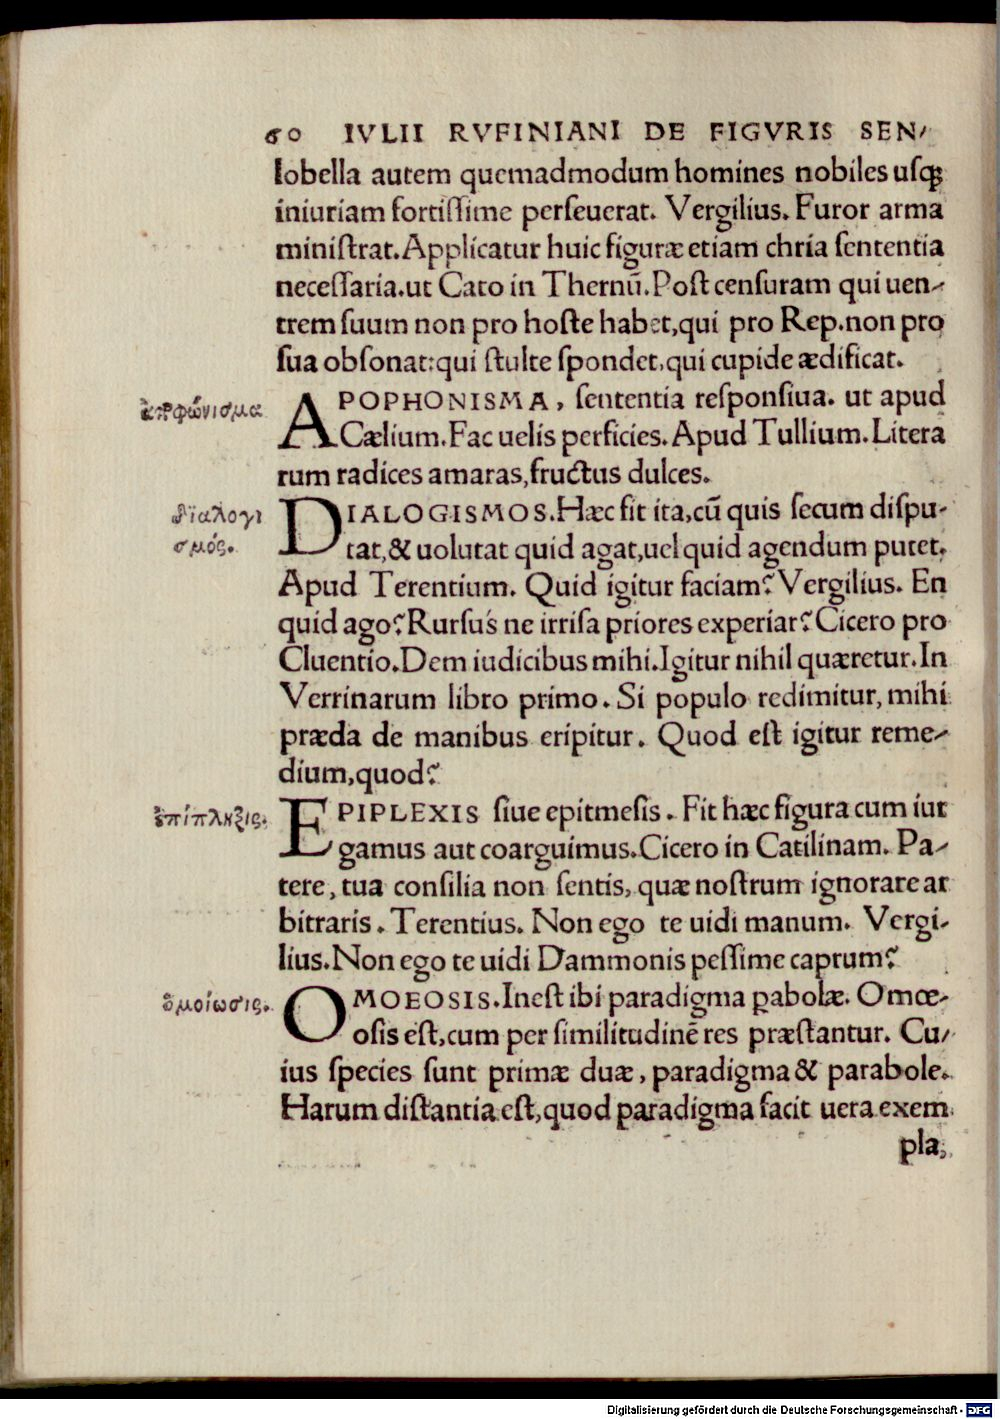 60 IVLII RVFINIANI DE FIGVRIS SEN/
lobella autem quemadmodum homines nobiles usq;
iniuriam fortiſſime perſeuerat. Vergilius. Furor arma
miniſtrat. Applicatur huic figuræ etiam chria ſententia
neceſſaria. ut Cato in Thernū. Poſt cenſuram qui uen-
trem ſuum non pro hoſte habet, qui pro Rep. non pro
ſua obſonat: qui ſtulte ſpondet, qui cupide ædificat.
ἀποφώνισμα
APOPHONISMA, ſententia reſponſiua. ut apud
Cælium. Fac uelis perficies. Apud Tullium. Litera
rum radices amaras, fructus dulces.
διαλογι
σμός.
DIALOGISMOS. Hæc fit ita, cū quis ſecum diſpu-
tat, & uolutat quid agat, uel quid agendum putet.
Apud Terentium. Quid igitur faciam? Vergilius. En
quid ago? Rurſus ne irriſa priores experiar? Cicero pro
Cluentio. Dem iudicibus mihi. Igitur nihil quæretur. In
Verrinarum libro primo. Si populo redimitur, mihi
præda de manibus eripitur. Quod eſt igitur reme-
dium, quod?
ἐπίπληξις.
EPIPLEXIS ſiue epitmeſis. Fit hæc figura cum iur
gamus aut coarguimus. Cicero in Catilinam. Pa-
tere, tua conſilia non ſentis, quæ noſtrum ignorare ar
bitraris. Terentius. Non ego te uidi manum. Vergi-
lius. Non ego te uidi Dammonis peſſime caprum?
ὁμοίωσις.
OMOEOSIS. Ineſt ibi paradigma ꝑabolæ. Omœ-
oſis eſt, cum per ſimilitudinē res præſtantur. Cu/
ius ſpecies ſunt primæ duæ, paradigma & parabole.
Harum diſtantia eſt, quod paradigma facit uera exem
pla,
Digitalisierung gefördert durch die Deutsche Forschungsgemeinschaft - DFG